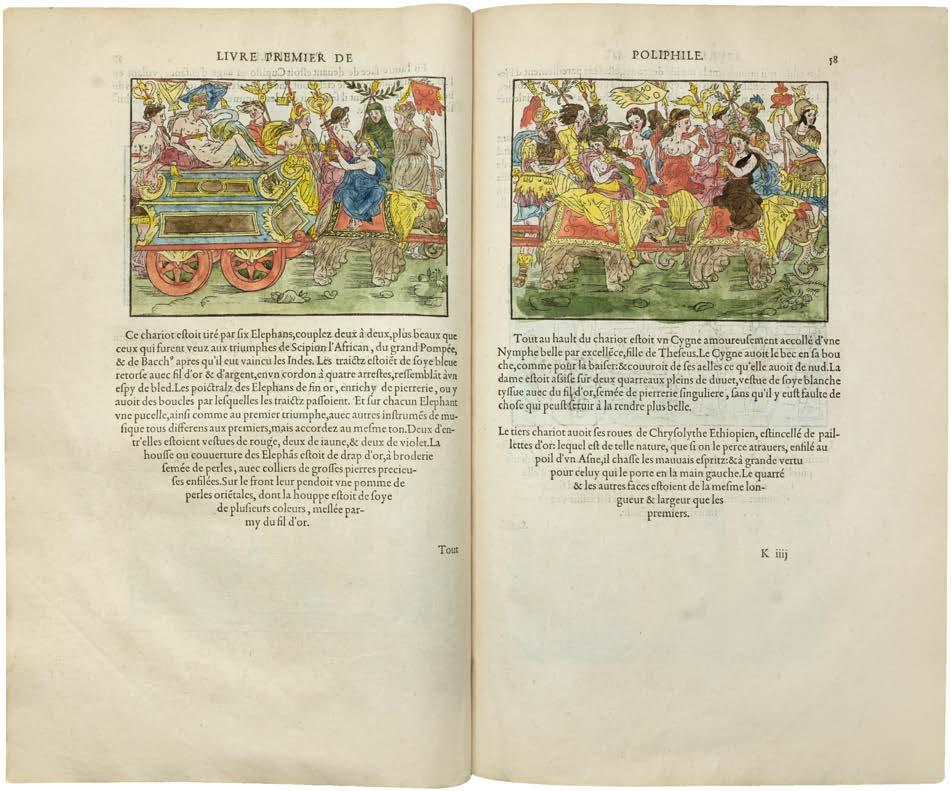 LIVRE PREMIER DE
Ce chariot estoit tiré par six Elephans, couplez deux à deux, plus beaux que
ceux qui furent veuz aux triumphes de Scipion l'African, du grand Pompée,
& de Bacchꝰ apres qu'il eut vaincu les Indes. Les traictz estoiẽt de soye bleue
retorse auec fil d'or & d'argent, en vn cordon à quatre arrestes, ressemblãt à vn
espy de bled. Les poictralz des Elephans de fin or, enrichy de pierrerie, ou y
auoit des boucles par lesquelles les traictz passoient. Et sur chacun Elephant
vne pucelle, ainsi comme au premier triumphe, auec autres instrumẽs de mu-
sique tous differens aux premiers, mais accordez au mesme ton. Deux d'en-
tr'elles estoient vestues de rouge, deux de iaune, & deux de violet. La
housse ou couuerture des Elephãs estoit de drap d'or, à broderie
semée de perles, auec colliers de grosses pierres precieu-
ses enfilées. Sur le front leur pendoit vne pomme de
perles oriẽtales, dont la houppe estoit de soye
de plusieurs coleurs, meslée par-
my du fil d'or.
Tout
POLIPHILE
58
Tout au hault du chariot estoit vn Cygne amoureusement accollé d'vne
Nymphe belle par excellẽce, fille de Theseus. Le Cygne auoit le bec en sa bou
che, comme pour la baiser: & couuroit de ses aelles ce qu'elle auoit de nud. La
dame estoit assise sur deux quarreaux pleins de duuet, vestue de soye blanche
tyssue auec du fil d'or, semée de pierrerie singuliere, sans qu'il y eust faulte de
chose qui peust seruir à la rendre plus belle.
Le tiers chariot auoit ses roues de Chrysolythe Ethiopien, estincellé de pail-
lettes d'or: lequel est de telle nature, que si on le perce atrauers, enfilé au
poil d'vn Asne, il chasse les mauuais espritz: & à grande vertu
pour celuy qui le porte en la main gauche. Le quarré
& les autres faces estoient de la mesme lon-
gueur & largeur que les
premiers.
K iiij